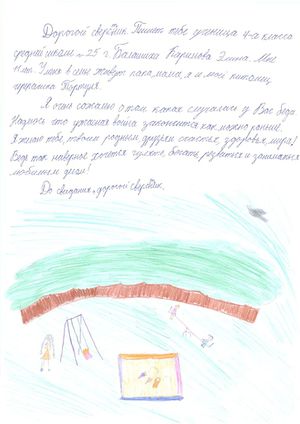 Дорогой сверстник. Пишет тебе ученица 4-а класса
средней школы №25 г. Балашиха Каримова Элина. Мне
лет. У меня в семье живут папа, мама, я и мой питомец,
черепашка
Я очень сожалею о том какая случилась у Вас беда.
Надеюсь это ужасная война закончится как можно раньше.
Я желаю тебе, твоим родным, друзьям остаться здоровья, мира!
Ведь так наверное хочется гулять, бегать, резвиться и заниматься
любимым делом!
До свидания, дорогой сверстник.